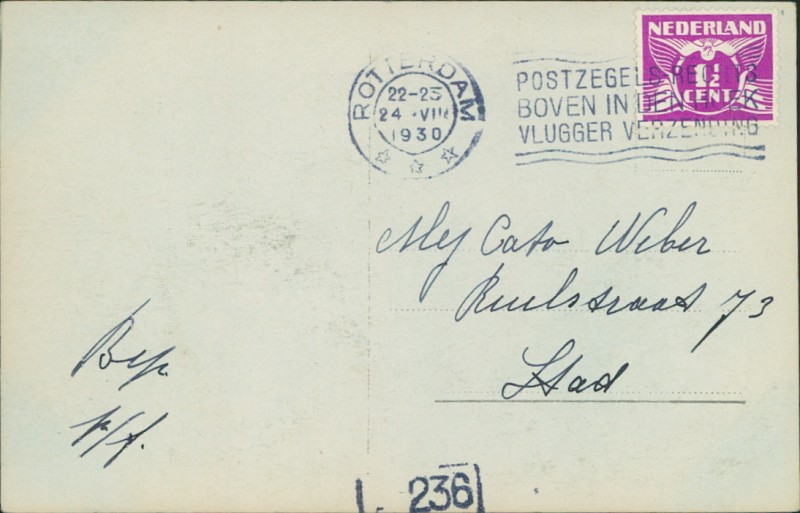 NEDERLAND
1½
CENT
ROTTERDAM
22-23
24 VIII
1930
POSTZEGELS RECHTS
BOVEN IN DEN HOEK
VLUGGER VERZENDING
Mej Cato Weber
Ruilstraat 73
Stad
Bep
p/f.
236